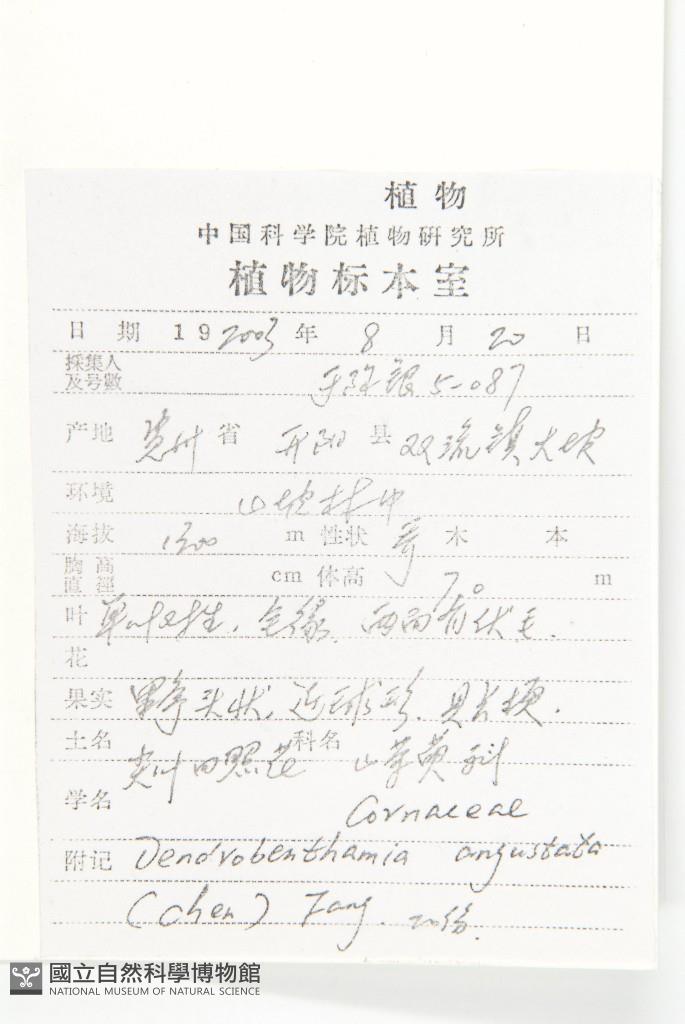 植物
中国科学院植物研究所
植物标本室
日期 19 2003 年 8 月 20 日
採集人
及号數 5-087
产地 贵州 省 开阳 县 双流镇大坡
环境 山坡林中
海拔 1300 m 性状 乔 木 本
胸高
直徑 cm 体高 7.0 m
叶 单叶对生, 全缘, 两面有伏毛.
花
果实 果序头状, 近球形, 具长梗.
土名 尖叶四照花 科名 山茱萸科
学名 Cornaceae
附记 Dendrobenthamia angustata
(Chen) Fang. 20份.
國立自然科學博物館
NATIONAL MUSEUM OF NATURAL SCIENCE